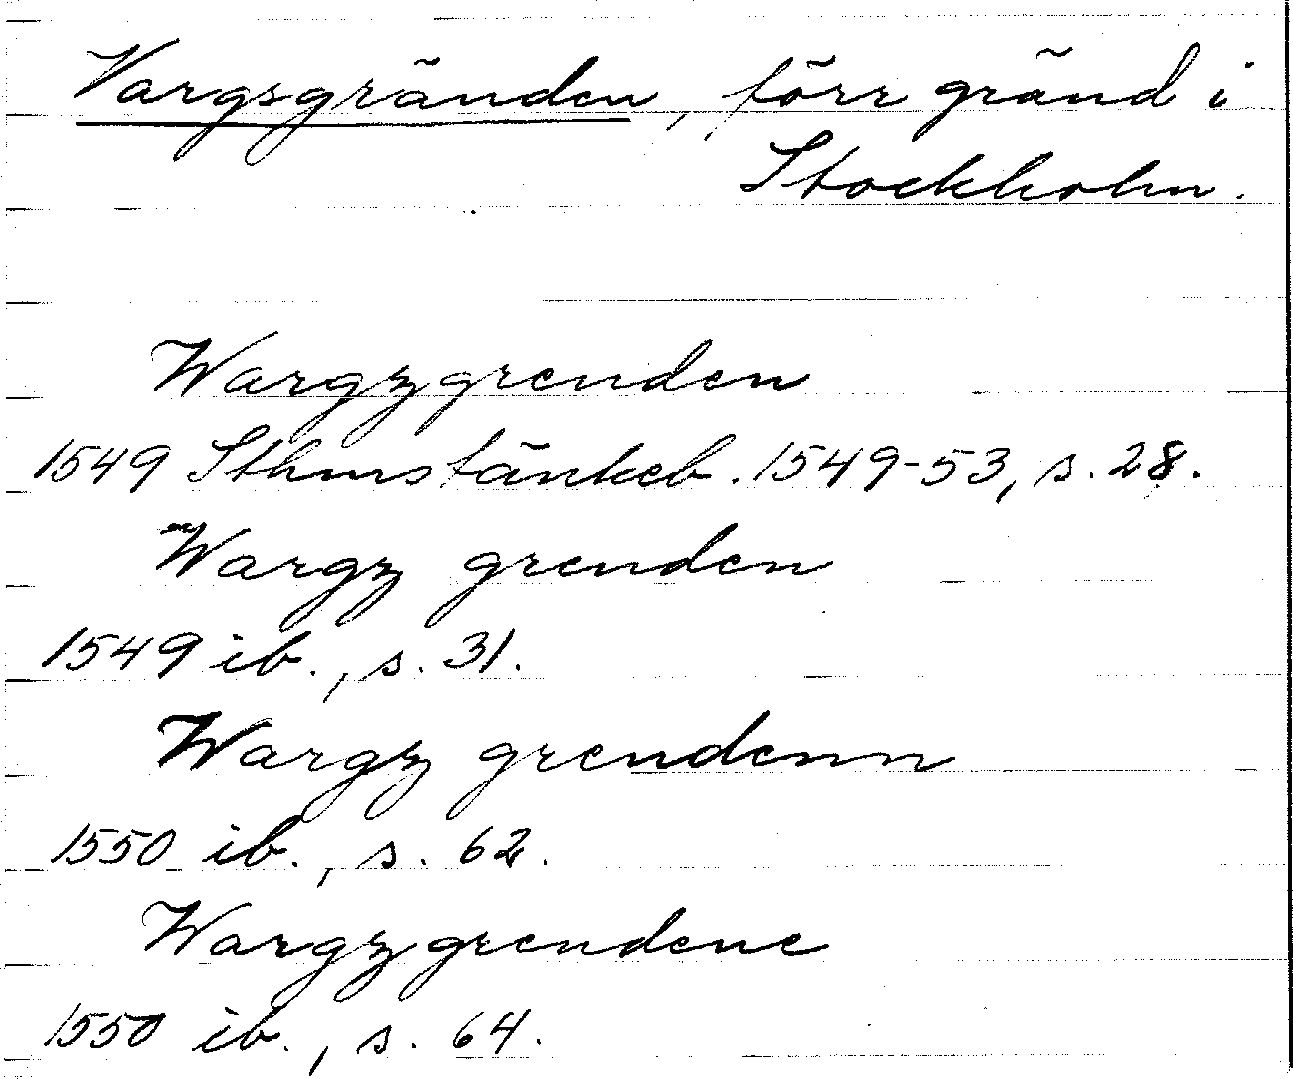 Vargsgränden, förr gränd i
Stockholm.
Wargzgrenden
1549 Sthmstänkeb. 1549-53, s. 28.
Wargz grenden
1549 ib., s. 31.
Wargz grendenn
1550 ib., s. 62.
Wargzgrendene
1550 ib., s. 64.